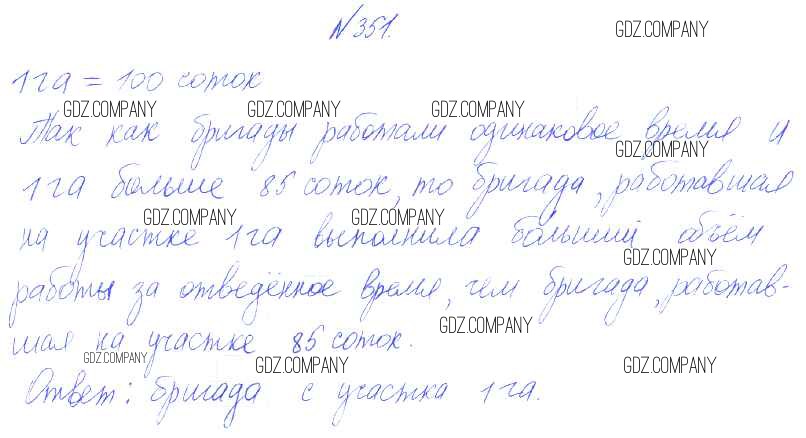 №351.
GDZ.COMPANY
1 га = 100 соток
GDZ.COMPANY GDZ.COMPANY GDZ.COMPANY
Так как бригады работали одинаковое время и
GDZ.COMPANY
1 га больше 85 соток, то бригада, работавшая
GDZ.COMPANY GDZ.COMPANY
на участке 1 га выполнила больший объём
GDZ.COMPANY
работы за отведённое время, чем бригада, работав-
GDZ.COMPANY
шая на участке 85 соток.
GDZ.COMPANY GDZ.COMPANY GDZ.COMPANY
Ответ: бригада с участка 1 га.